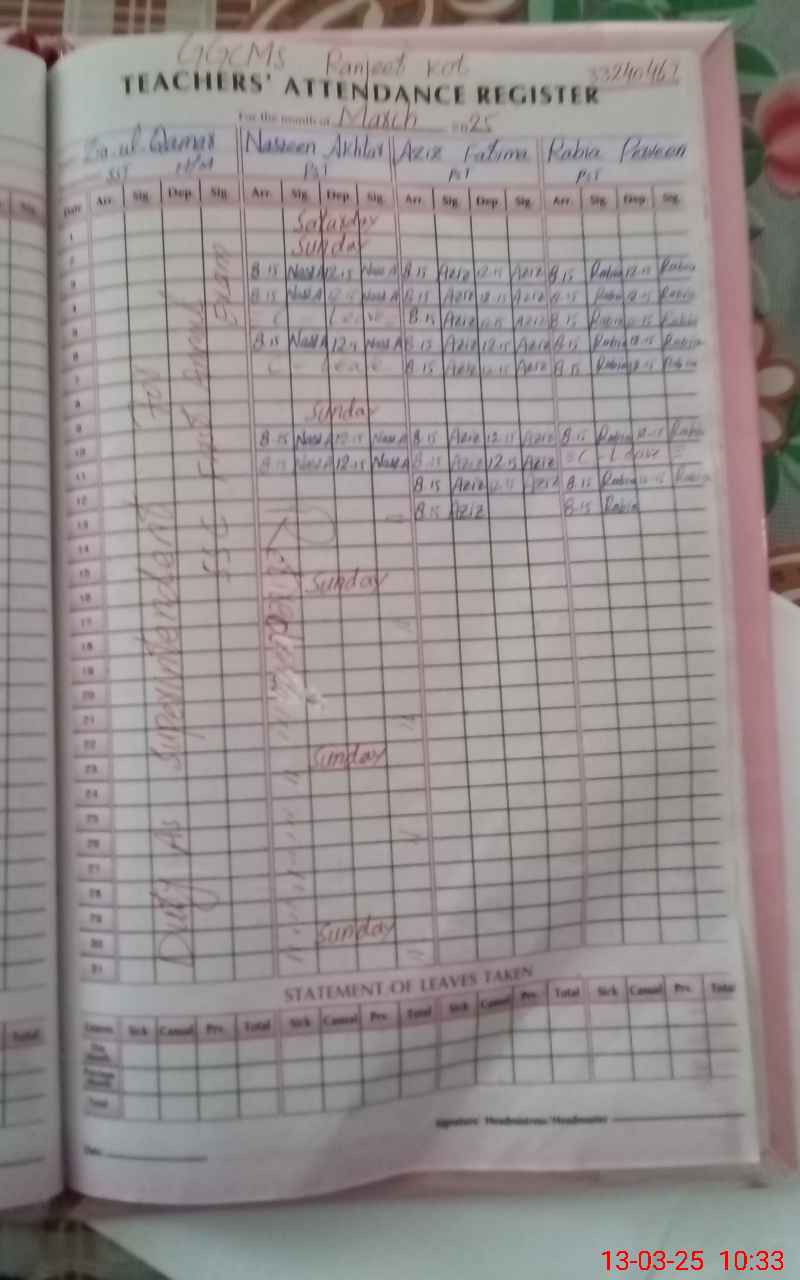 GGCMS Ranjeet Kot 33240462
TEACHERS' ATTENDANCE REGISTER
For the month of March 25
Zia.ul.Qamar Nasreen Akhtar Aziz Fatima Rabia Perveen
SST H/M PST PST PST
Date Arr. Sig. Dep. Sig. Arr. Sig. Dep. Sig. Arr. Sig. Dep. Sig. Arr. Sig. Dep. Sig.
1 Saturday
2 Sunday
3 8.15 Nasr A 12.15 Nasr A 8.15 Aziz 12.15 Aziz 8.15 Rabia 12.15 Rabia
4 8.15 Nasr A 12.15 Nasr A 8.15 Aziz 12.15 Aziz 8.15 Rabia 12.15 Rabia
5 C - Leave 8.15 Aziz 12.15 Aziz 8.15 Rabia 12.15 Rabia
6 8.15 Nasr A 12.15 Nasr A 8.15 Aziz 12.15 Aziz 8.15 Rabia 12.15 Rabia
7 C - Leave 8.15 Aziz 12.15 Aziz 8.15 Rabia 12.15 Rabia
8
9 Sunday
10 8.15 Nasr A 12.15 Nasr A 8.15 Aziz 12.15 Aziz 8.15 Rabia 12.15 Rabia
11 8.15 Nasr A 12.15 Nasr A 8.15 Aziz 12.15 Aziz = C - Leave =
12 8.15 Aziz 12.15 Aziz 8.15 Rabia 12.15 Rabia
13 8.15 Aziz 8.15 Rabia
14
15
16 Sunday
17
18
19
20
21
22
23 Sunday
24
25
26
27
28
29
30 Sunday
31
Duty As Superintendent For
SSC Exam
STATEMENT OF LEAVES TAKEN
Leaves Sick Casual Prv. Total Sick Casual Prv. Total Sick Casual Prv. Total Sick Casual Prv. Total
Total
Signature Headmistress/Headmaster
Date
13-03-25 10:33